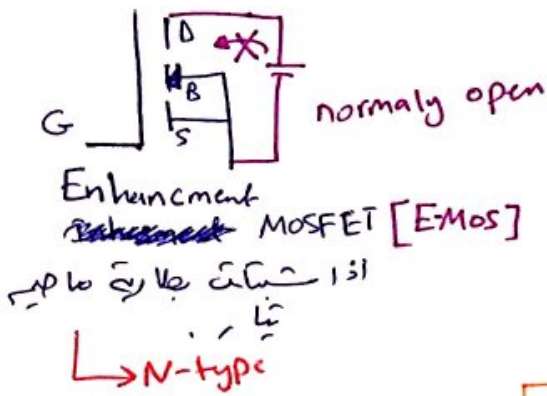 D
B
G
S
normaly open
Enhancment
MOSFET [E-MOS]
اذا شبكت بطارية ما صير
تيار
N-type